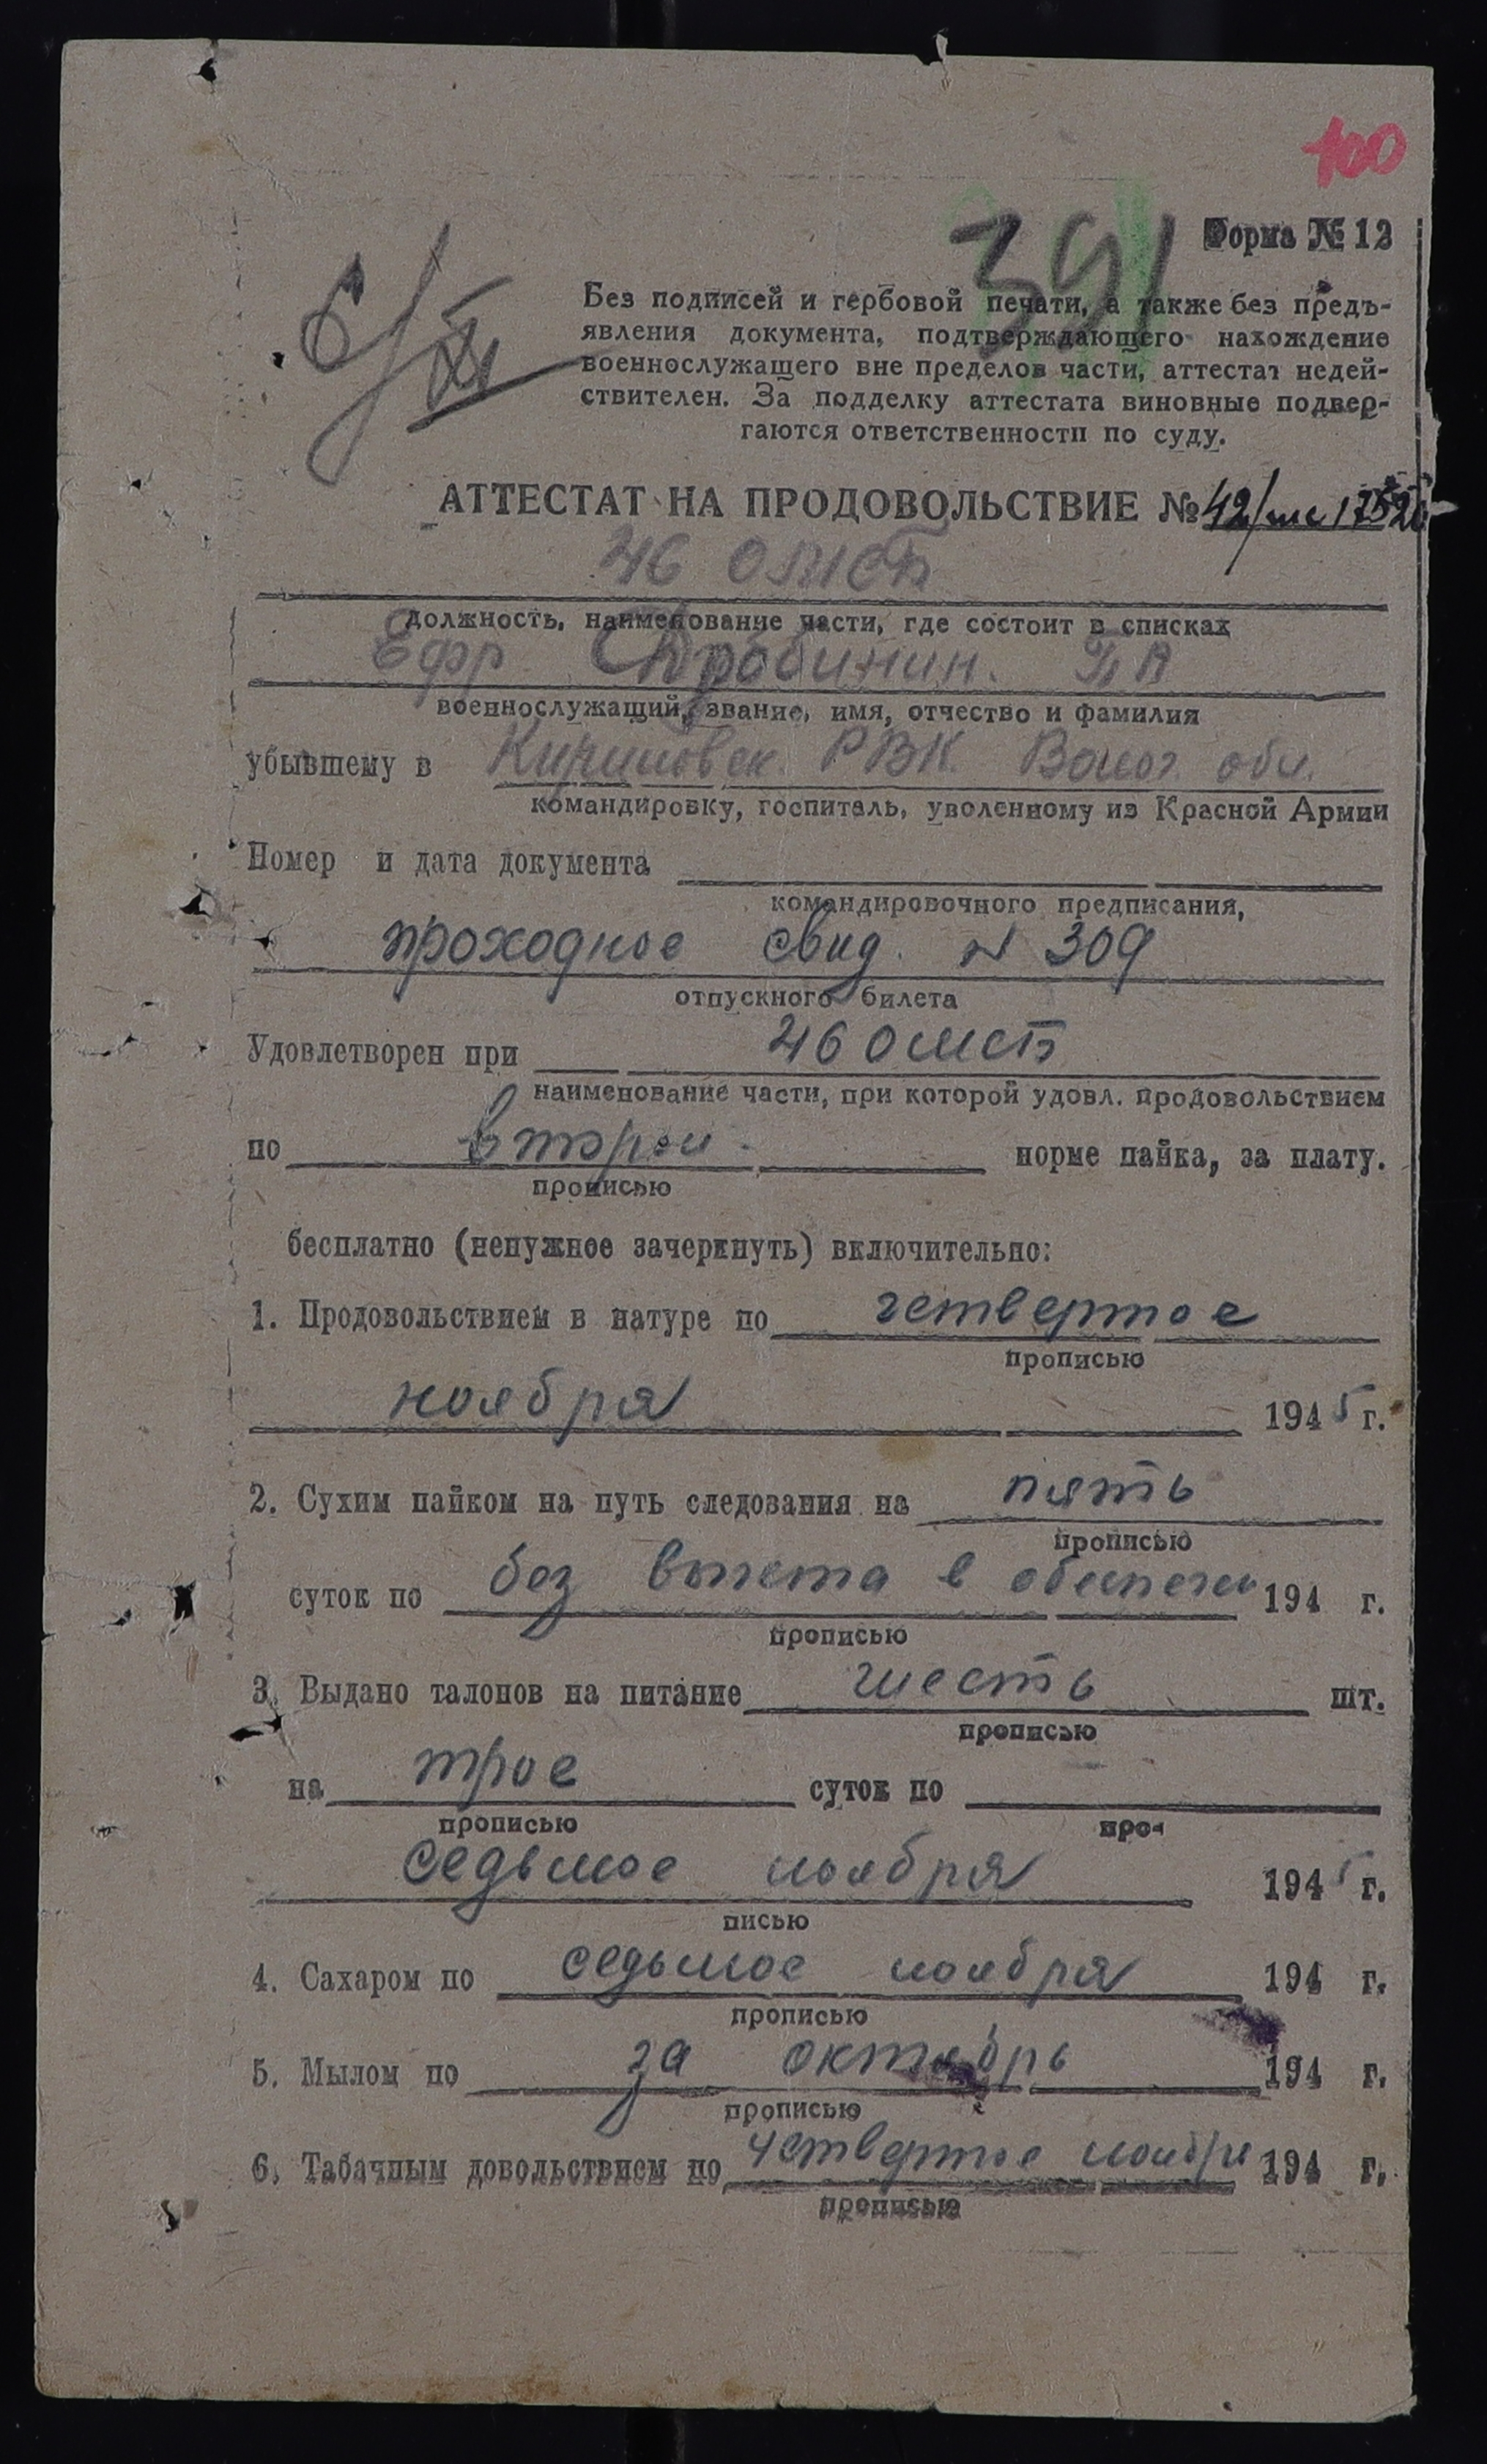 100
391
Форма № 12
6/XI
Без подписей и гербовой печати, а также без предъ-
явления документа, подтверждающего нахождение
военнослужащего вне пределов части, аттестат недей-
ствителен. За подделку аттестата виновные подвер-
гаются ответственности по суду.
АТТЕСТАТ НА ПРОДОВОЛЬСТВИЕ № 42/
46 омсб
должность, наименование части, где состоит в списках
Ефр П А
военнослужащий, звание, имя, отчество и фамилия
убывшему в РВК Волог. обл.
командировку, госпиталь, уволенному из Красной Армии
Номер и дата документа
командировочного предписания,
проходное свид. N 309
отпускного билета
Удовлетворен при 46 омсб
наименование части, при которой удовл. продовольствием
по второй норме пайка, за плату.
прописью
бесплатно (ненужное зачеркнуть) включительно:
1. Продовольствием в натуре по четвертое
прописью
ноября 1945 г.
2. Сухим пайком на путь следования на пять
прописью
суток по без вычета в 194 г.
прописью
3. Выдано талонов на питание шесть шт.
прописью
на трое суток по
прописью про-
седьмое ноября 1945 г.
писью
4. Сахаром по седьмое ноября 194 г.
прописью
5. Мылом по за октябрь 194 г.
прописью
6. Табачным довольствием по четвертое ноября 194 г.
прописью